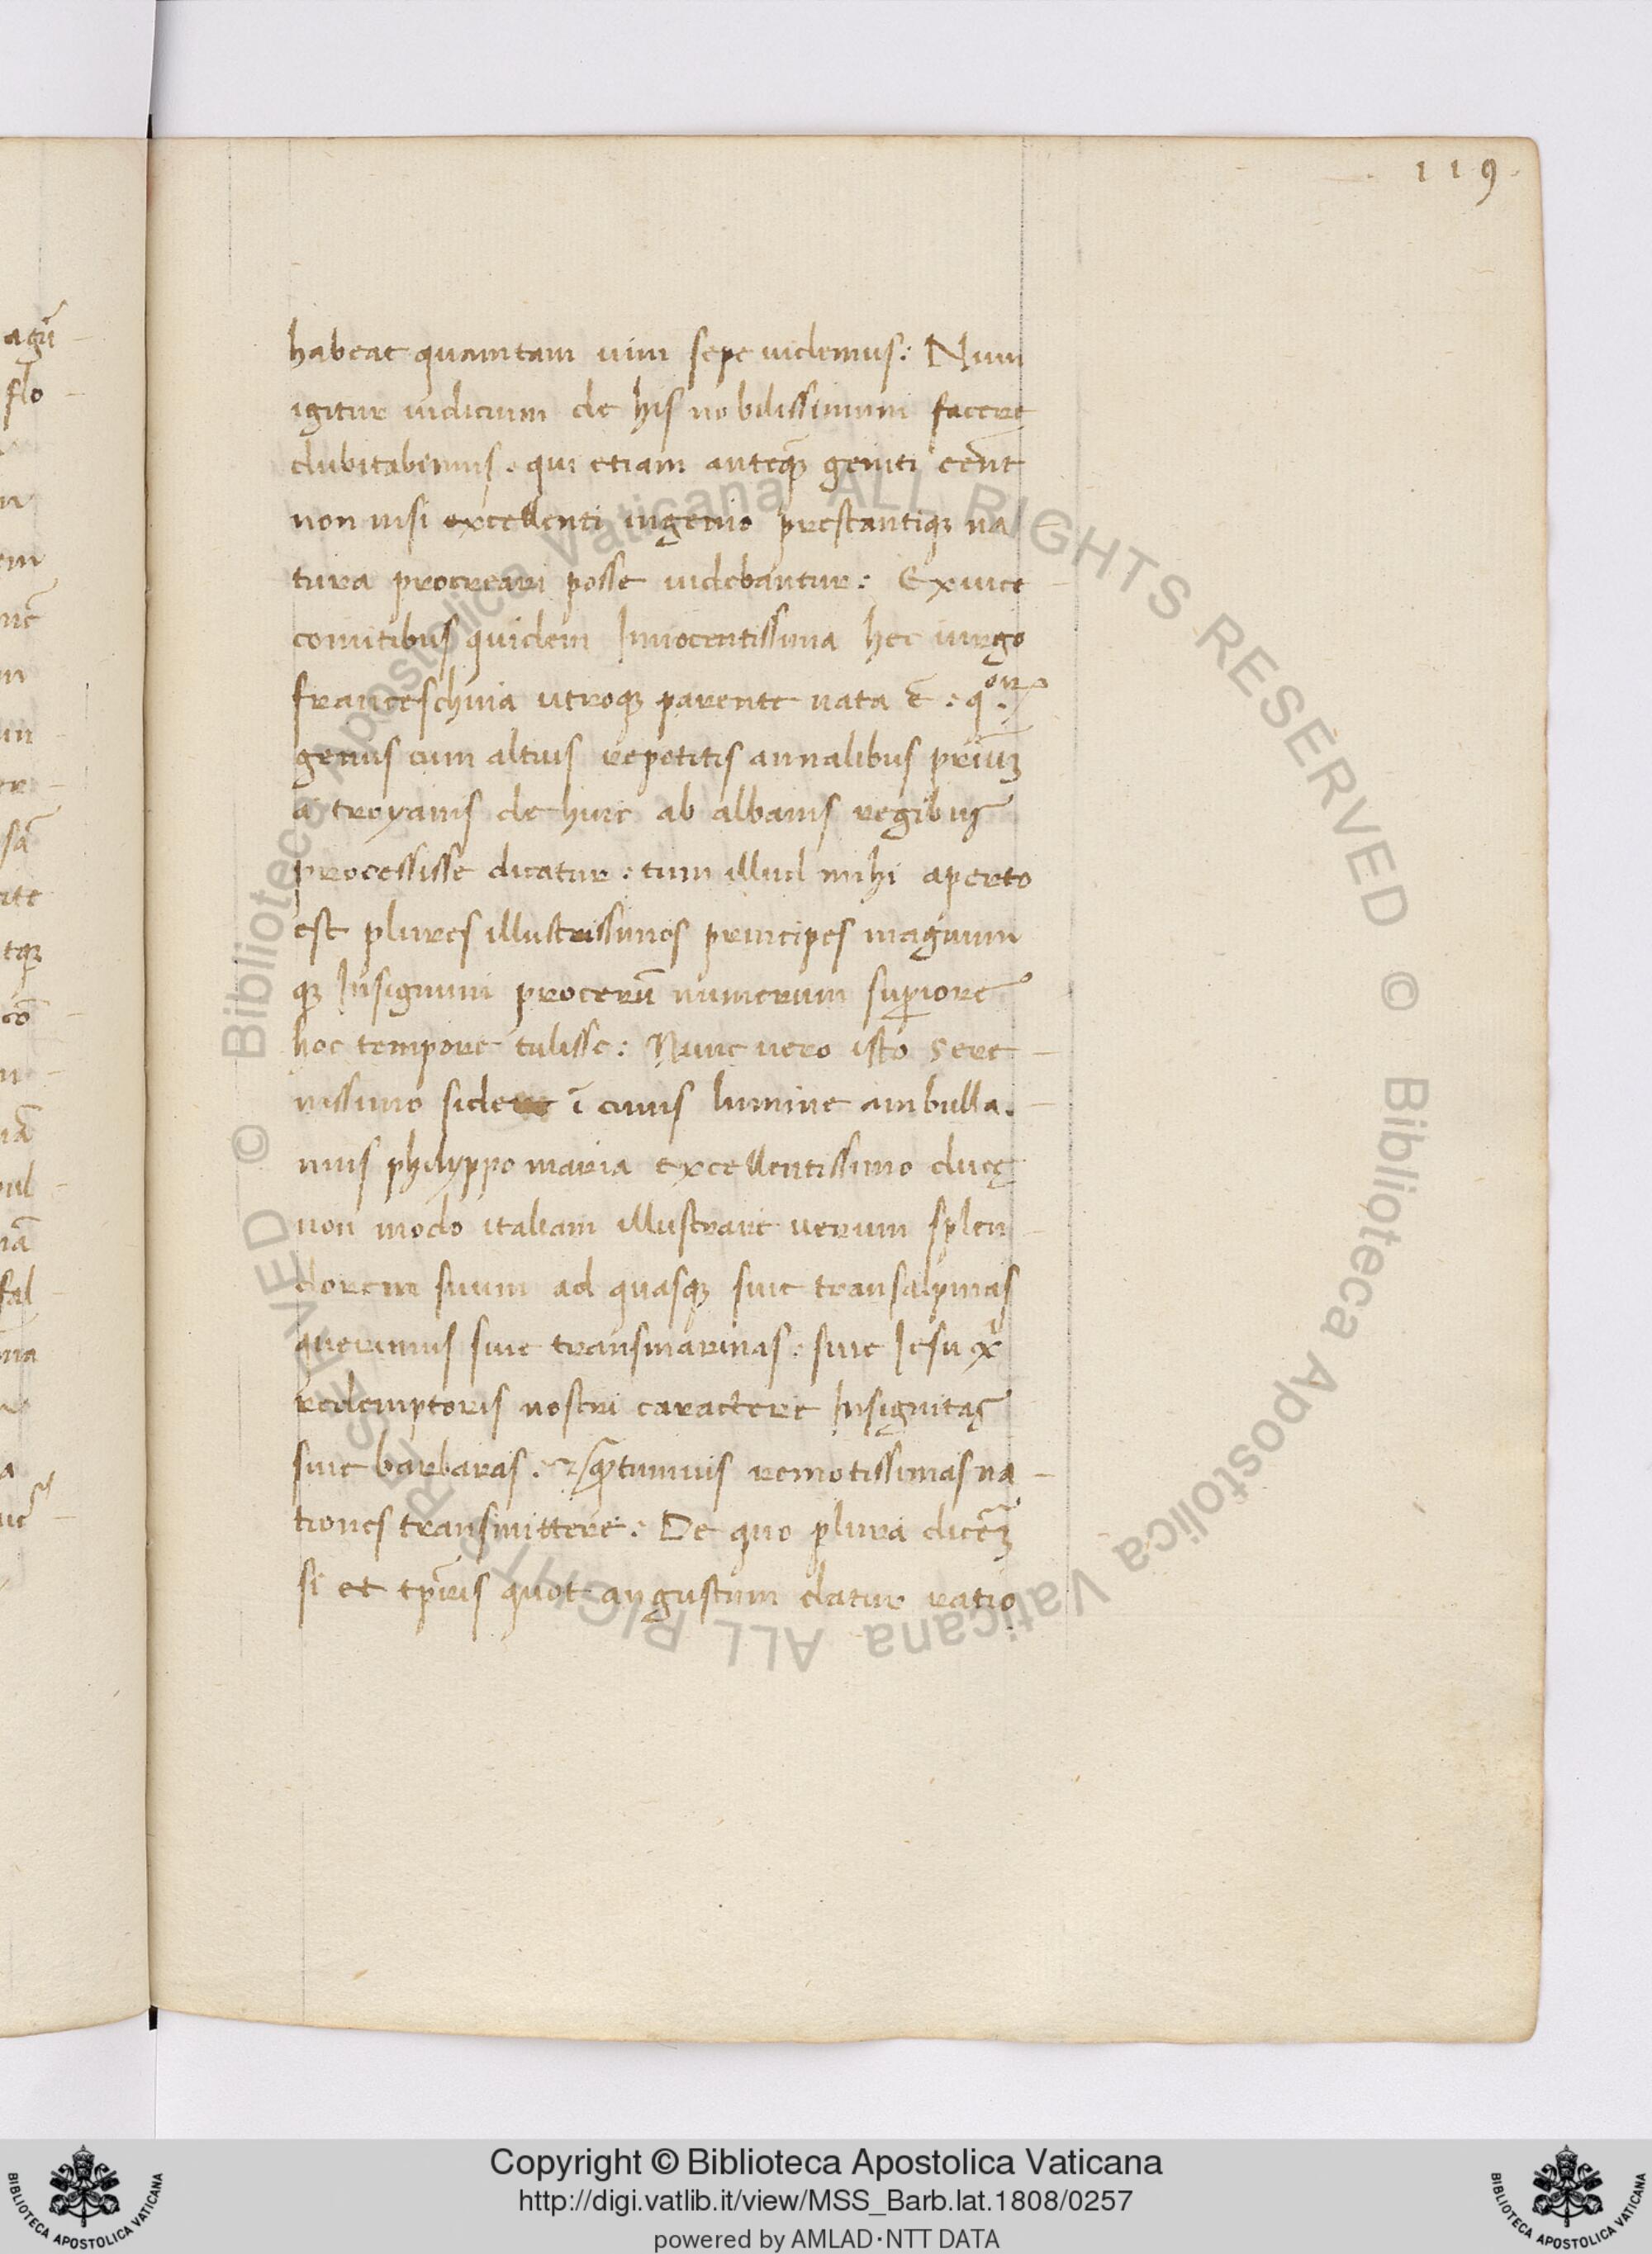 119
habeat quantam uim sepe uidemus: Num
igitur iudicium de his nobilissimum facere
dubitabimus. qui etiam anteqȝ geniti eent
non nisi excellenti ingenio prestantiqȝ na
tura procreari posse uidebantur: Ex uice
comitibus quidem Innocentissima hec uirgo
franceschina utroqȝ parente nata ē. qorꝝ
genus cum altius repetitis annalibus primuȝ
a troyanis dehinc ab albanis regibus
processisse dicatur: tum illud mihi aperto
est plures illustrissimos principes magnum
qȝ Insignium procerū numerum superiore
hoc tempore tulisse: Nunc uero isto sere
nissimo sidere ī cuius lumine ambulla.
mus philyppo maria excellentissimo duce
non modo italiam illustrare uerum splen
dorem suum ad quasqȝ siue transalpinas
querimus siue transmarinas. siue Iesu xi
redemptoris nostri caractere Insignitas
siue barbaras. remotissimas na
tiones transmittere: De quo plura diceȝ
si et tp̄ris quot angustum datur ratio
agū
flo
Copyright © Biblioteca Apostolica Vaticana
http://digi.vatlib.it/view/MSS_Barb.lat.1808/0257
powered by AMLAD·NTT DATA
BIBLIOTECA APOSTOLICA VATICANA
BIBLIOTECA APOSTOLICA VATICANA
© Biblioteca Apostolica Vaticana ALL RIGHTS RESERVED © Biblioteca Apostolica Vaticana ALL RIGHTS RESERVED